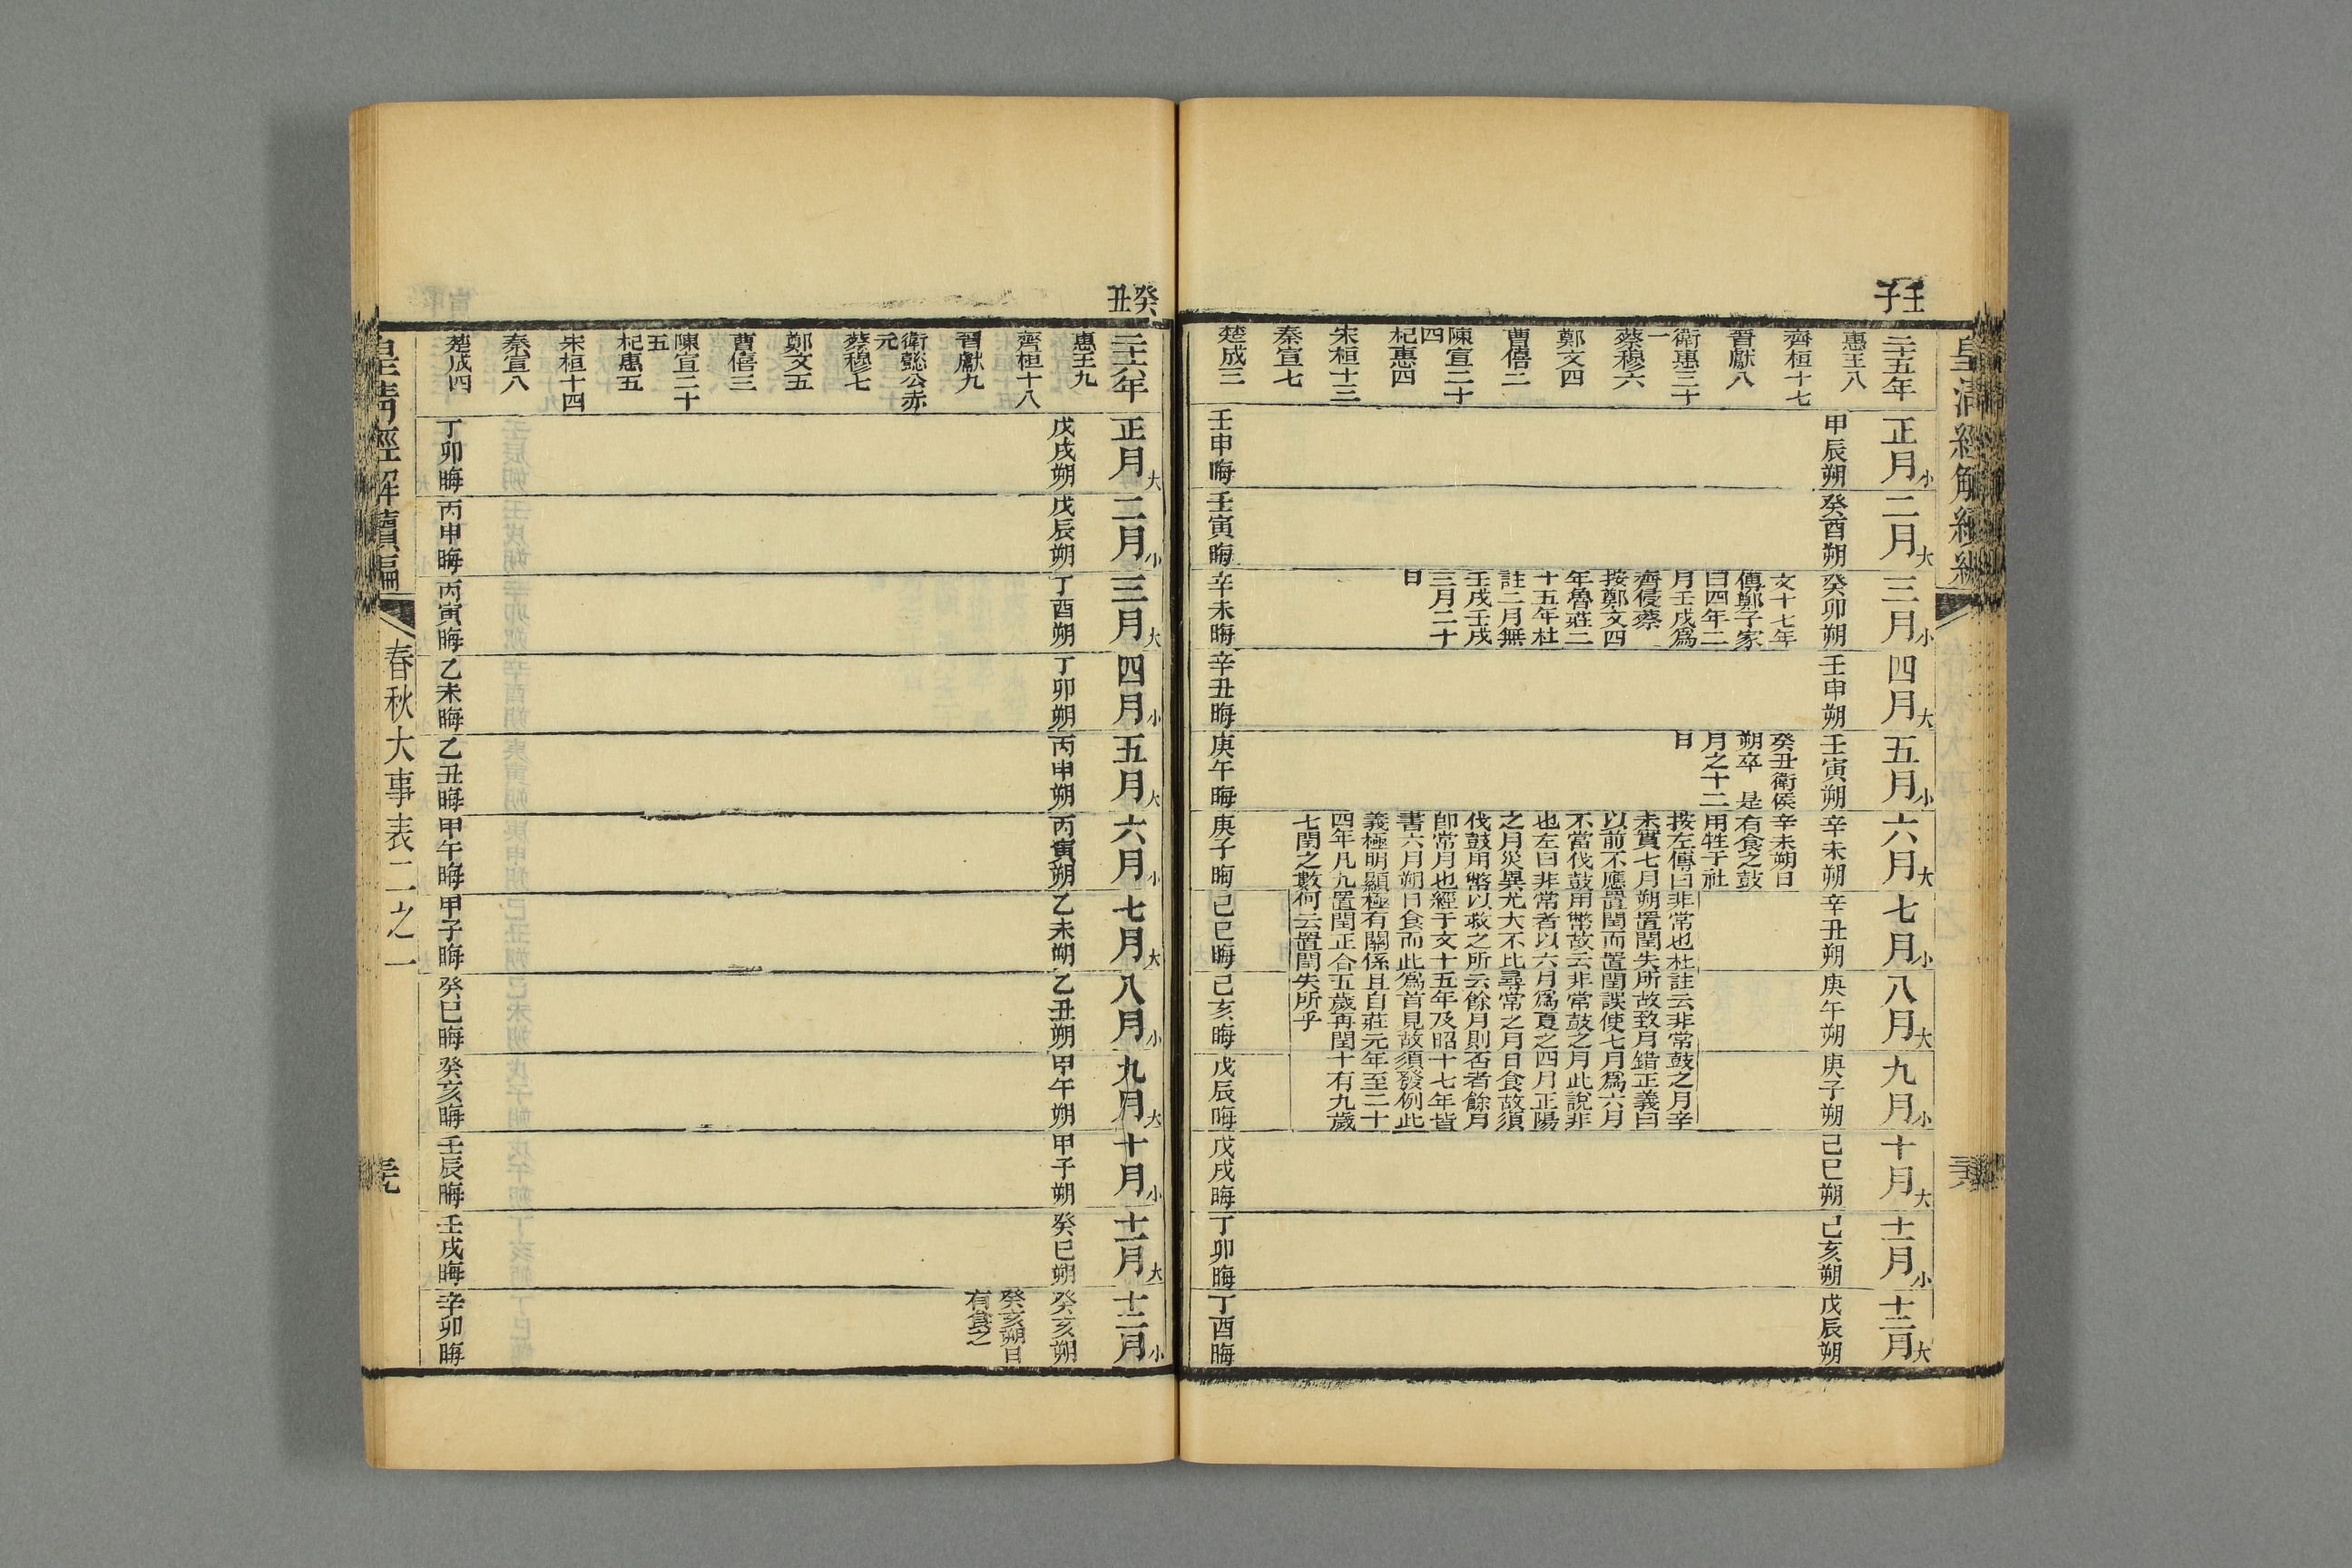 皇清經解續編
壬子
二十五年
惠王八
齊桓十七
晉獻八
衛惠三十一
蔡穆六
鄭文四
曹僖二
陳宣二十四
杞惠四
宋桓十三
秦宣七
楚成三
正月小
甲辰朔
壬申晦
二月大
癸酉朔
壬寅晦
三月小
癸卯朔
文十七年
傳鄭子家
曰四年二
月壬戌為
齊侵蔡
按鄭文四
年魯莊二
十五年杜
註二月無
壬戌壬戌
三月二十
日
辛未晦
四月大
壬申朔
辛丑晦
五月小
壬寅朔
癸丑衛侯
朔卒 是
月之十二
日
庚午晦
六月大
辛未朔
辛未朔日
有食之鼓
用牲于社
按左傳曰非常也杜註云非常鼓之月辛
未實七月朔置閏失所故致月錯正義曰
以前不應置閏而置閏誤使七月為六月
不當伐鼓用幣故云非常鼓之月此說非
也左曰非常者以六月為夏之四月正陽
之月災異尤大不比尋常之月日食故須
伐鼓用幣以救之所云餘月則否者餘月
即常月也經于文十五年及昭十七年皆
書六月朔日食而此為首見故須發例此
義極明顯極有關係且自莊元年至二十
四年凡九置閏正合五歲再閏十有九歲
七閏之數何云置閏失所乎
庚子晦
七月小
辛丑朔
己巳晦
八月大
庚午朔
己亥晦
九月小
庚子朔
戊辰晦
十月大
己巳朔
戊戌晦
十一月小
己亥朔
丁卯晦
十二月大
戊辰朔
丁酉晦
癸丑
二十六年
惠王九
齊桓十八
晉獻九
衛懿公赤元
蔡穆七
鄭文五
曹僖三
陳宣二十五
杞惠五
宋桓十四
秦宣八
楚成四
正月大
戊戌朔
丁卯晦
二月小
戊辰朔
丙申晦
三月大
丁酉朔
丙寅晦
四月小
丁卯朔
乙未晦
五月大
丙申朔
乙丑晦
六月小
丙寅朔
甲午晦
七月大
乙未朔
甲子晦
八月小
乙丑朔
癸巳晦
九月大
甲午朔
癸亥晦
十月小
甲子朔
壬辰晦
十一月大
癸巳朔
壬戌晦
十二月小
癸亥朔
癸亥朔日
有食之
辛卯晦
皇清經解續編
春秋大事表二之一